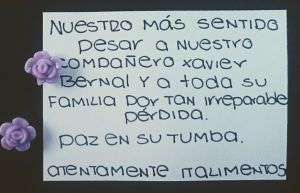 NUESTRO MÁS SENTIDO
PESAR A NUESTRO
COMPAÑERO XAVIER
BERNAL Y A TODA SU
FAMILIA POR TAN IRREPARABLE
PÉRDIDA.
PAZ EN SU TUMBA.
ATENTAMENTE ITALIMENTOS